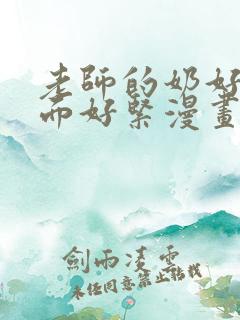 老師的奶好
而好緊漫畫
劍雨凌雲
未经同意禁止转载